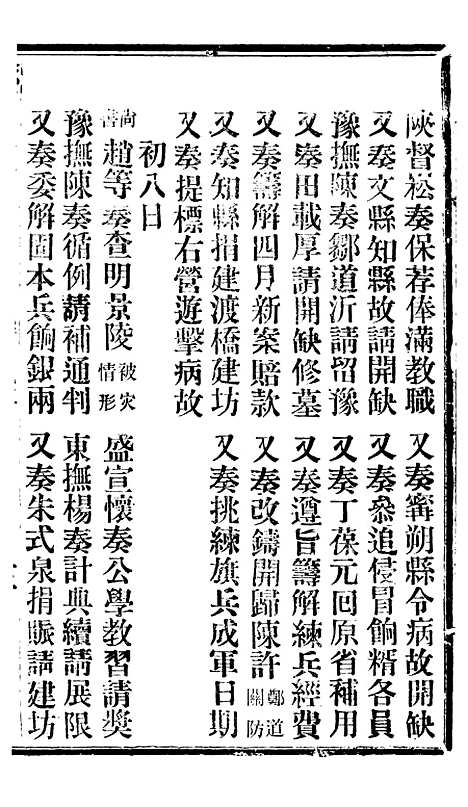 陝督崧奏保荐俸滿教職　又奏甯朔縣令病故開缺
又奏文縣知縣故請開缺　又奏叅追侵冒餉糈各員
豫撫陳奏鄒道沂請留豫　又奏丁葆元回原省補用
又奏田載厚請開缺修墓　又奏遵旨籌解練兵經費
又奏籌解四月新案賠款　又奏改鑄開歸陳許鄭道關防
又奏知縣捐建渡橋建坊　又奏挑練旗兵成軍日期
又奏提標右營遊擊病故
初八日
尚善趙等奏查明景陵被灾情形　盛宣懷奏公學教習請奬
豫撫陳奏循例請補通判　東撫楊奏計典續請展限
又奏委解固本兵餉銀兩　又奏朱式泉捐賑請建坊